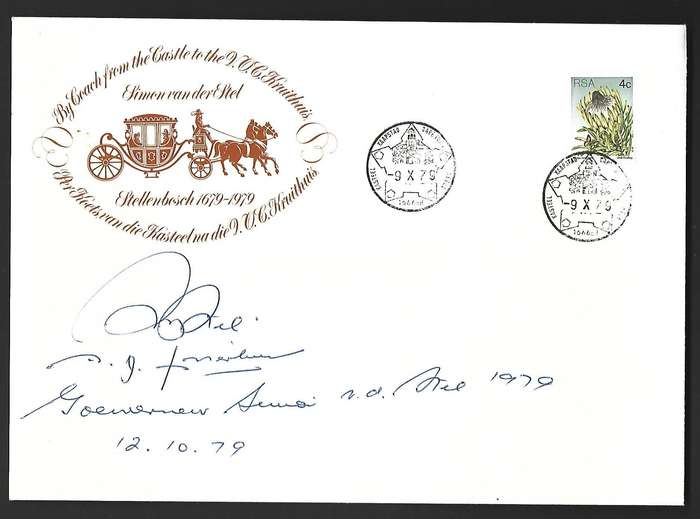 By Coach from the Castle to the V.O.C. Kruithuis
Simon van der Stel
Stellenbosch 1679-1979
Per Koets van die Kasteel na die V.O.C. Kruithuis
RSA 4c
KASTEEL KAAPSTAD CAPE
-9 X 79
1666
KASTEEL KAAPSTAD CAPE
-9 X 79
1666
Goewerneur Simon v.d. Stel 1979
12.10.79